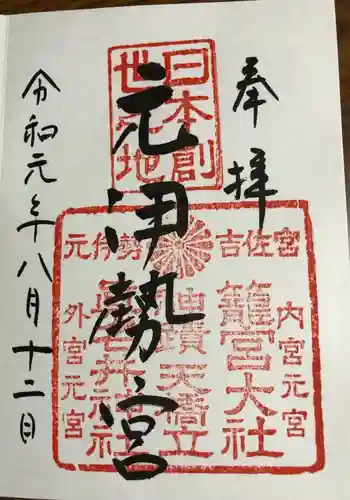 奉拝
日本創
世之地
元伊勢宮
吉佐宮
元伊勢
内宮元宮
籠宮大社
仙蹟天橋立
真名井神社
外宮元宮
令和元年八月十二日